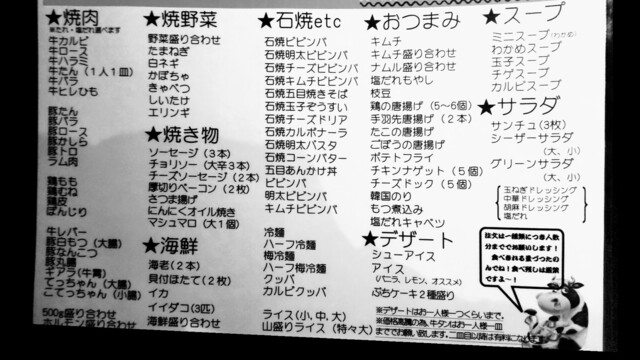 ★焼肉
※たれ・塩だれ選べます
牛カルビ
牛ロース
牛ハラミ
牛たん（１人１皿）
牛バラ
牛ヒレひも
豚たん
豚バラ
豚ロース
豚かしら
豚トロ
ラム肉
鶏もも
鶏むね
鶏皮
ぼんじり
牛レバー
豚白もつ（大腸）
豚なんこつ
豚丸腸
ギアラ（牛胃）
てっちゃん（大腸）
こてっちゃん（小腸）
500g盛り合わせ
ホルモン盛り合わせ
★焼野菜
野菜盛り合わせ
たまねぎ
白ネギ
かぼちゃ
きゃべつ
しいたけ
エリンギ
★焼き物
ソーセージ（３本）
チョリソー（大辛３本）
チーズソーセージ（２本）
厚切りベーコン（２枚）
さつま揚げ
にんにくオイル焼き
マシュマロ（大１個）
★海鮮
海老（２本）
貝付ほたて（２枚）
イカ
イイダコ（3匹）
海鮮盛り合わせ
★石焼etc
石焼ビビンバ
石焼明太ビビンバ
石焼チーズビビンバ
石焼キムチビビンバ
石焼五目焼きそば
石焼玉子ぞうすい
石焼チーズドリア
石焼カルボナーラ
石焼明太パスタ
石焼コーンバター
五目あんかけ丼
ビビンバ
明太ビビンバ
キムチビビンバ
冷麺
ハーフ冷麺
梅冷麺
ハーフ梅冷麺
クッパ
カルビクッパ
ライス（小、中、大）
山盛りライス（特々大）
★おつまみ
キムチ
キムチ盛り合わせ
ナムル盛り合わせ
塩だれもやし
枝豆
鶏の唐揚げ（５～６個）
手羽先唐揚げ（２本）
たこの唐揚げ
ごぼうの唐揚げ
ポテトフライ
チキンナゲット（５個）
チーズドック（５個）
韓国のり
もつ煮込み
塩だれキャベツ
★デザート
シューアイス
アイス
（バニラ、レモン、オススメ）
ぷちケーキ２種盛り
※デザートはお一人様一つぐらいまで。
※価格高騰の為、牛タンはお一人様一皿
まででお願い致します。二皿目以降は有料になります。
★スープ
ミニスープ（わかめ）
わかめスープ
玉子スープ
チゲスープ
カルビスープ
★サラダ
サンチュ（3枚）
シーザーサラダ
（大、小）
グリーンサラダ
（大、小）
玉ねぎドレッシング
中華ドレッシング
胡麻ドレッシング
塩だれ
注文は一種類につき人数
分まででお願いします！
食べきれる量づつたの
んでね！食べ残しは厳禁
ですよ～！